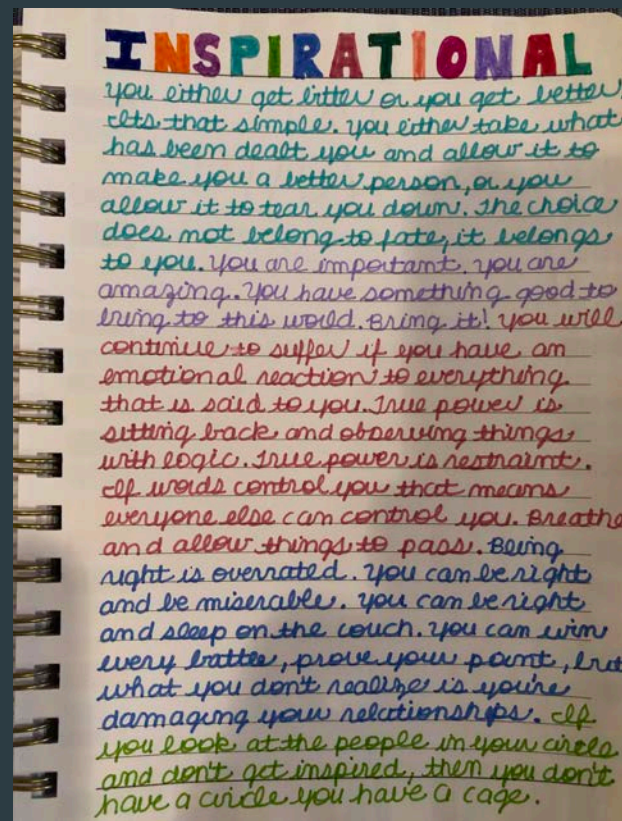 INSPIRATIONAL
you either get bitter or you get better,
its that simple. you either take what
has been dealt you and allow it to
make you a better person, or you
allow it to tear you down. The choice
does not belong to fate, it belongs
to you. you are important. you are
amazing. you have something good to
bring to this world. Bring it! you will
continue to suffer if you have an
emotional reaction to everything
that is said to you. True power is
sitting back and observing things
with logic. True power is restraint.
If words control you that means
everyone else can control you. Breathe
and allow things to pass. Being
right is overrated. you can be right
and be miserable. you can be right
and sleep on the couch. you can win
every battle, prove your point, but
what you don't realize is you're
damaging your relationships. If
you look at the people in your circle
and don't get inspired, then you don't
have a circle you have a cage.